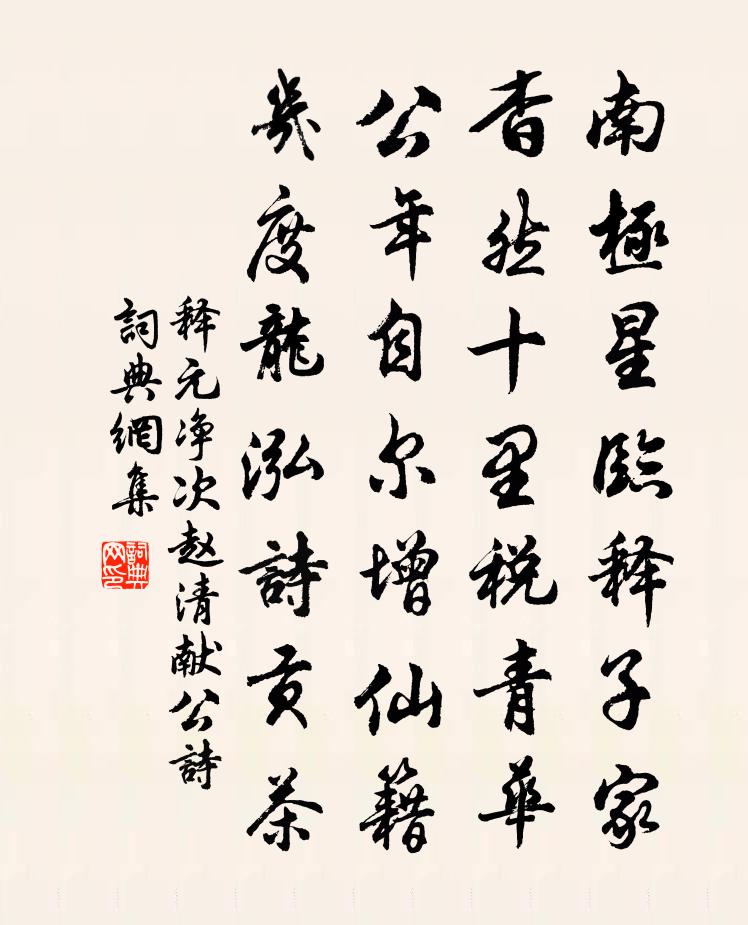 南極星臨释子家
杳然十里税青華
公年自尔增仙籍
幾度龍泓詩貢茶
释元净次赵清献公詩
詞典網集
詞典网印